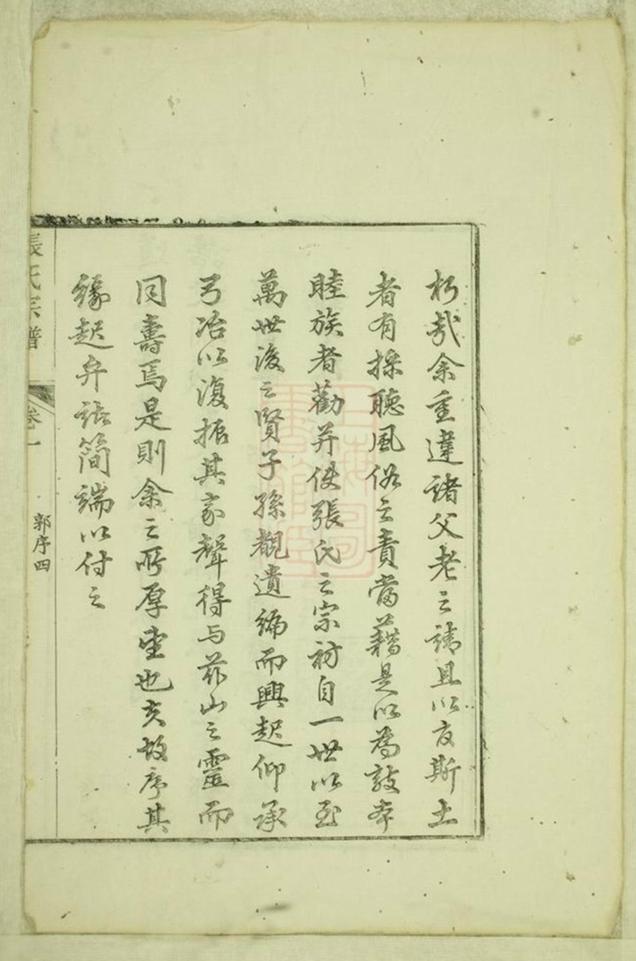 朽哉余重違諸父老之請且以官斯土
者有採聽風俗之責當藉是以為敦本
睦族者勸并使張氏之宗祊自一世以至
萬世後之賢子孫覩遺編而興起仰承
弓冶以復振其家聲得与茲山之靈而
同壽焉是則余之所厚望也夫故序其
緣起弁諸簡端以付之
張氏宗譜
卷一
郭序四